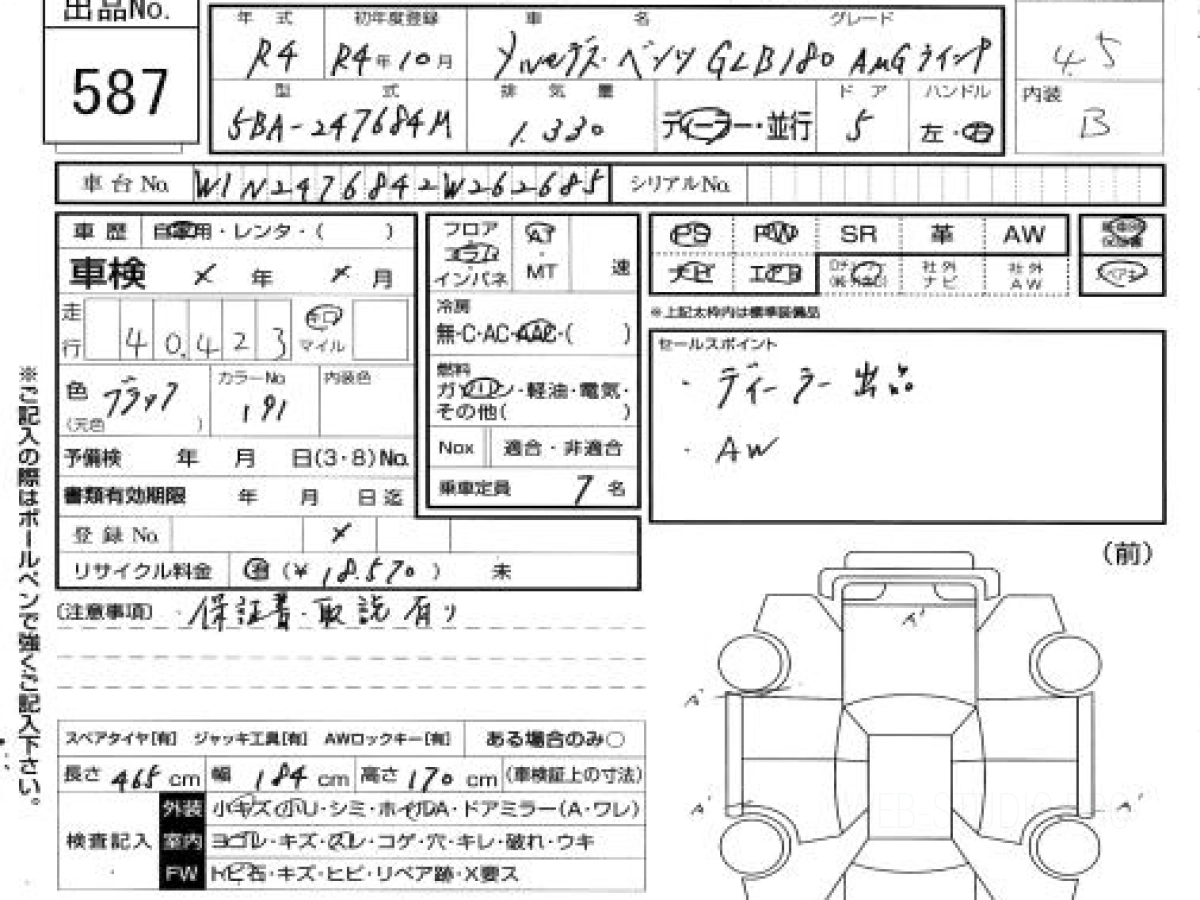 出品No.
587
年式 初年度登録 車名 グレード
R4 R4年10月 メルセデス・ベンツ GLB180 AMGライン
4.5
型式 排気量 ドア ハンドル 内装
5BA-247684M 1.330 ディーラー・並行 5 左・右 B
車台No. W1N2476842W262685 シリアルNo.
車歴 自家用・レンタ・( )
車検 × 年 × 月
走行 40.423 キロ マイル
色 ブラック (天色 ) カラーNo. 191 内装色
予備検 年 月 日(3・8)No.
書類有効期限 年 月 日迄
登録No. ×
リサイクル料金 (¥ 18.570 ) 未
フロア コラム インパネ AT MT 速
冷房
無・C・AC・AAC・( )
燃料
ガソリン・軽油・電気・
その他( )
Nox 適合・非適合
乗車定員 7 名
PS PW SR 革 AW
ナビ エアB 社外ナビ 社外AW
※上記太枠内は標準装備品
セールスポイント
・ディーラー出品
・AW
(注意事項) ・保証書・取説有り
※ご記入の際はボールペンで強くご記入下さい。
スペアタイヤ[有] ジャッキ工具[有] AWロックキー[有] ある場合のみ○
長さ 465 cm 幅 184 cm 高さ 170 cm (車検証上の寸法)
検査記入
外装 小キズ・小U・シミ・ホイルA・ドアミラー(A・ワレ)
室内 ヨゴレ・キズ・スレ・コゲ・穴・キレ・破れ・ウキ
FW トビ石・キズ・ヒビ・リペア跡・X要ス
(前)
A'
A'
A'
A'